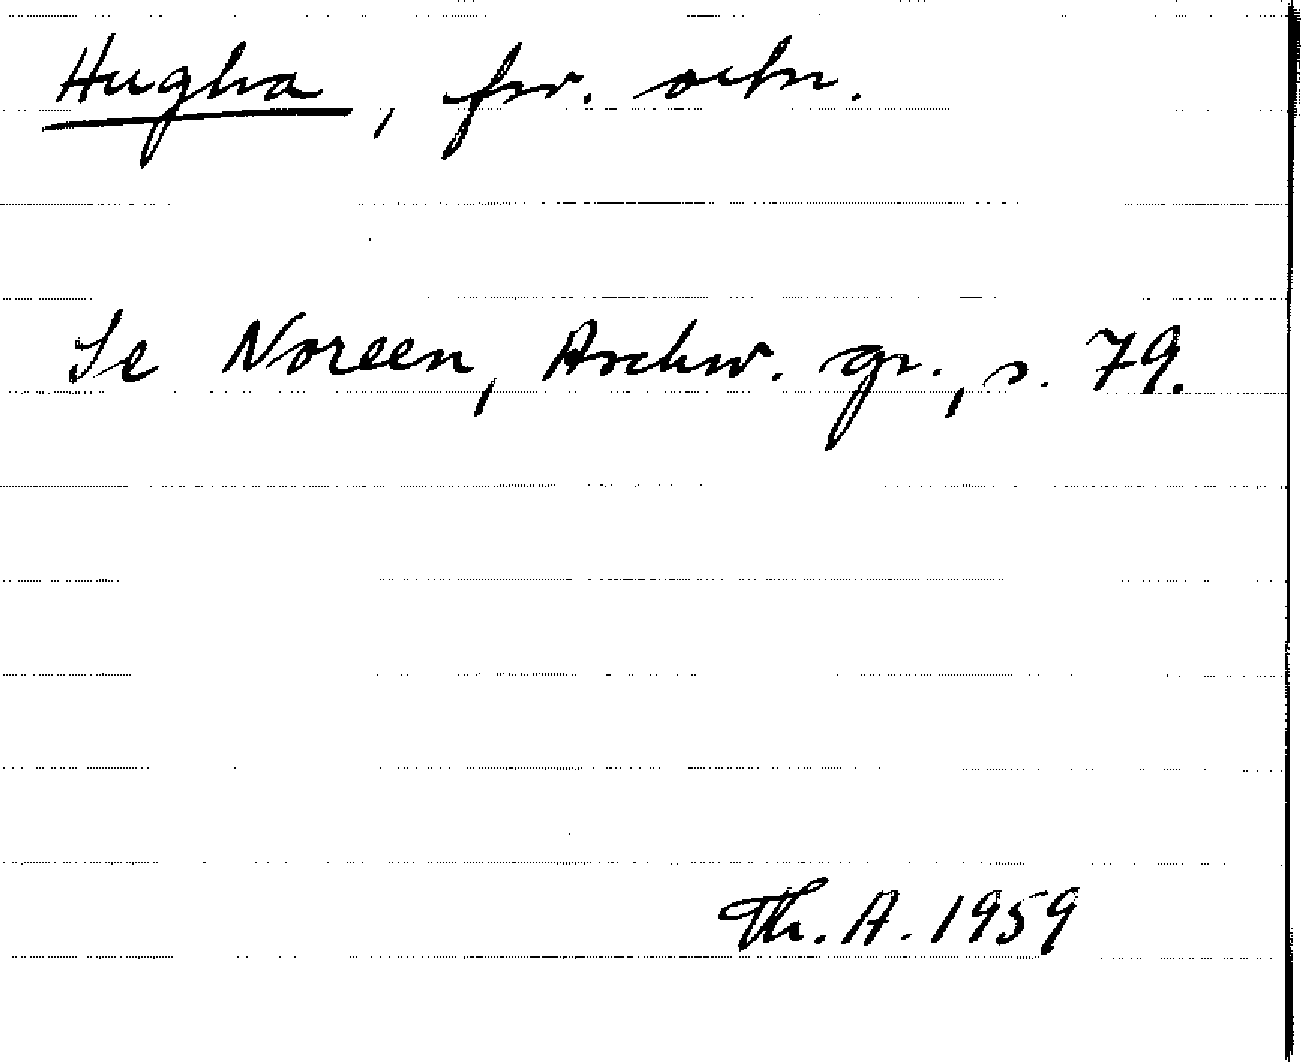 Hugha, fsv. ortn.
Se Noreen, Aschw. gr., s. 79.
Th. A. 1959